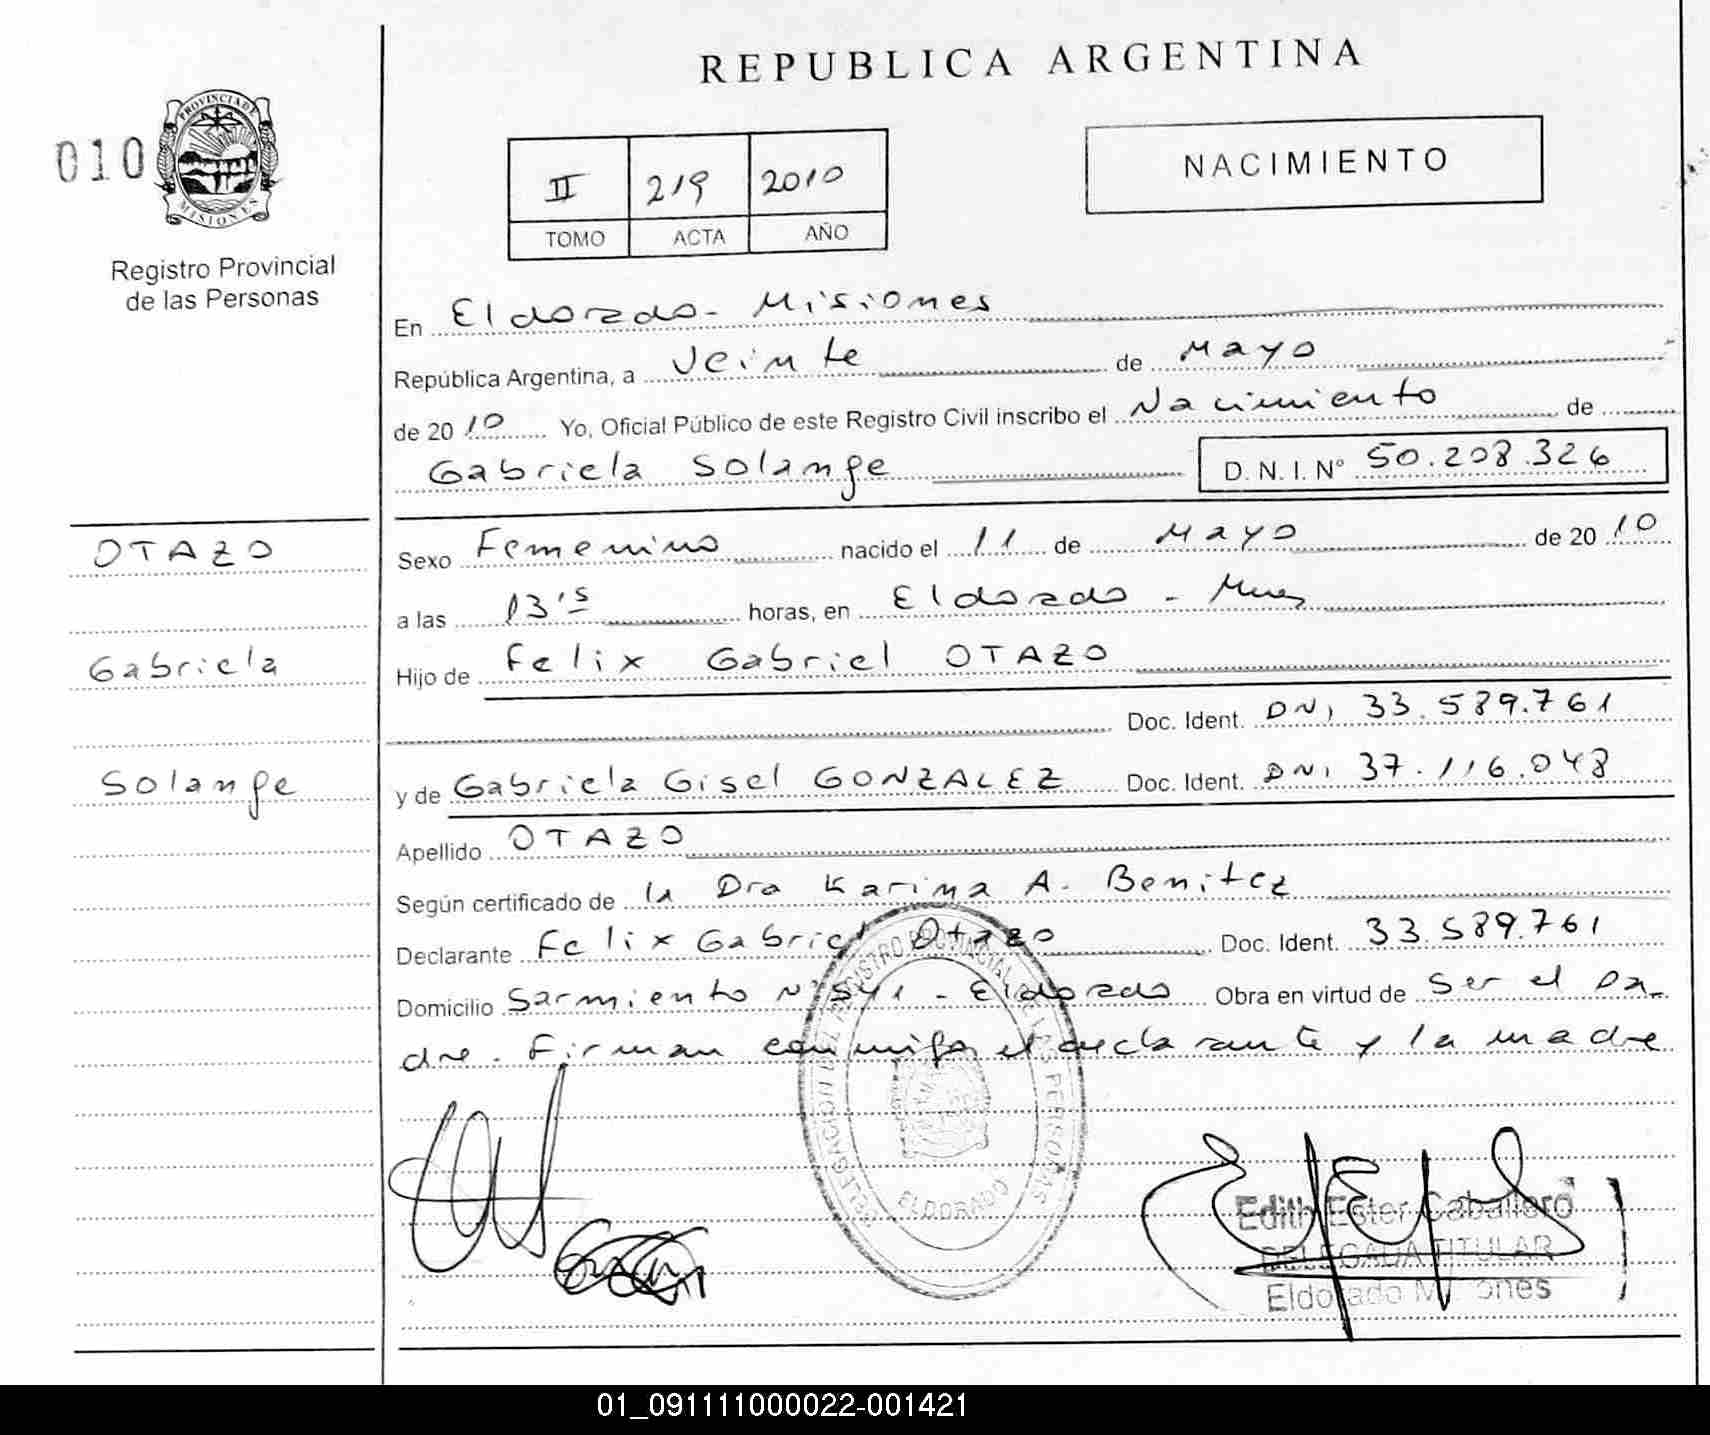 REPUBLICA ARGENTINA
010
PROVINCIA DE
MISIONES
Registro Provincial
de las Personas
II 219 2010
TOMO ACTA AÑO
NACIMIENTO
En Eldorado - Misiones
República Argentina, a Veinte de Mayo
de 2010 Yo, Oficial Público de este Registro Civil inscribo el Nacimiento de
Gabriela Solange D. N. I. N° 50.208.326
OTAZO
Gabriela
Solange
Sexo Femenino nacido el 11 de Mayo de 2010
a las 13's horas, en Eldorado - Mnes
Hijo de Felix Gabriel OTAZO
Doc. Ident. DNI 33.589.761
y de Gabriela Gisel GONZALEZ Doc. Ident. DNI 37.116.048
Apellido OTAZO
Según certificado de la Dra Karina A. Benitez
Declarante Felix Gabriel Otazo Doc. Ident. 33.589.761
Domicilio Sarmiento N° 541 - Eldorado Obra en virtud de Ser el Pa-
dre. Firman conmigo el declarante y la madre
DELEGACION DEL REGISTRO PROVINCIAL DE LAS PERSONAS
ELDORADO
Edith Ester Caballero
DELEGADA TITULAR
Eldorado Misiones
01_091111000022-001421